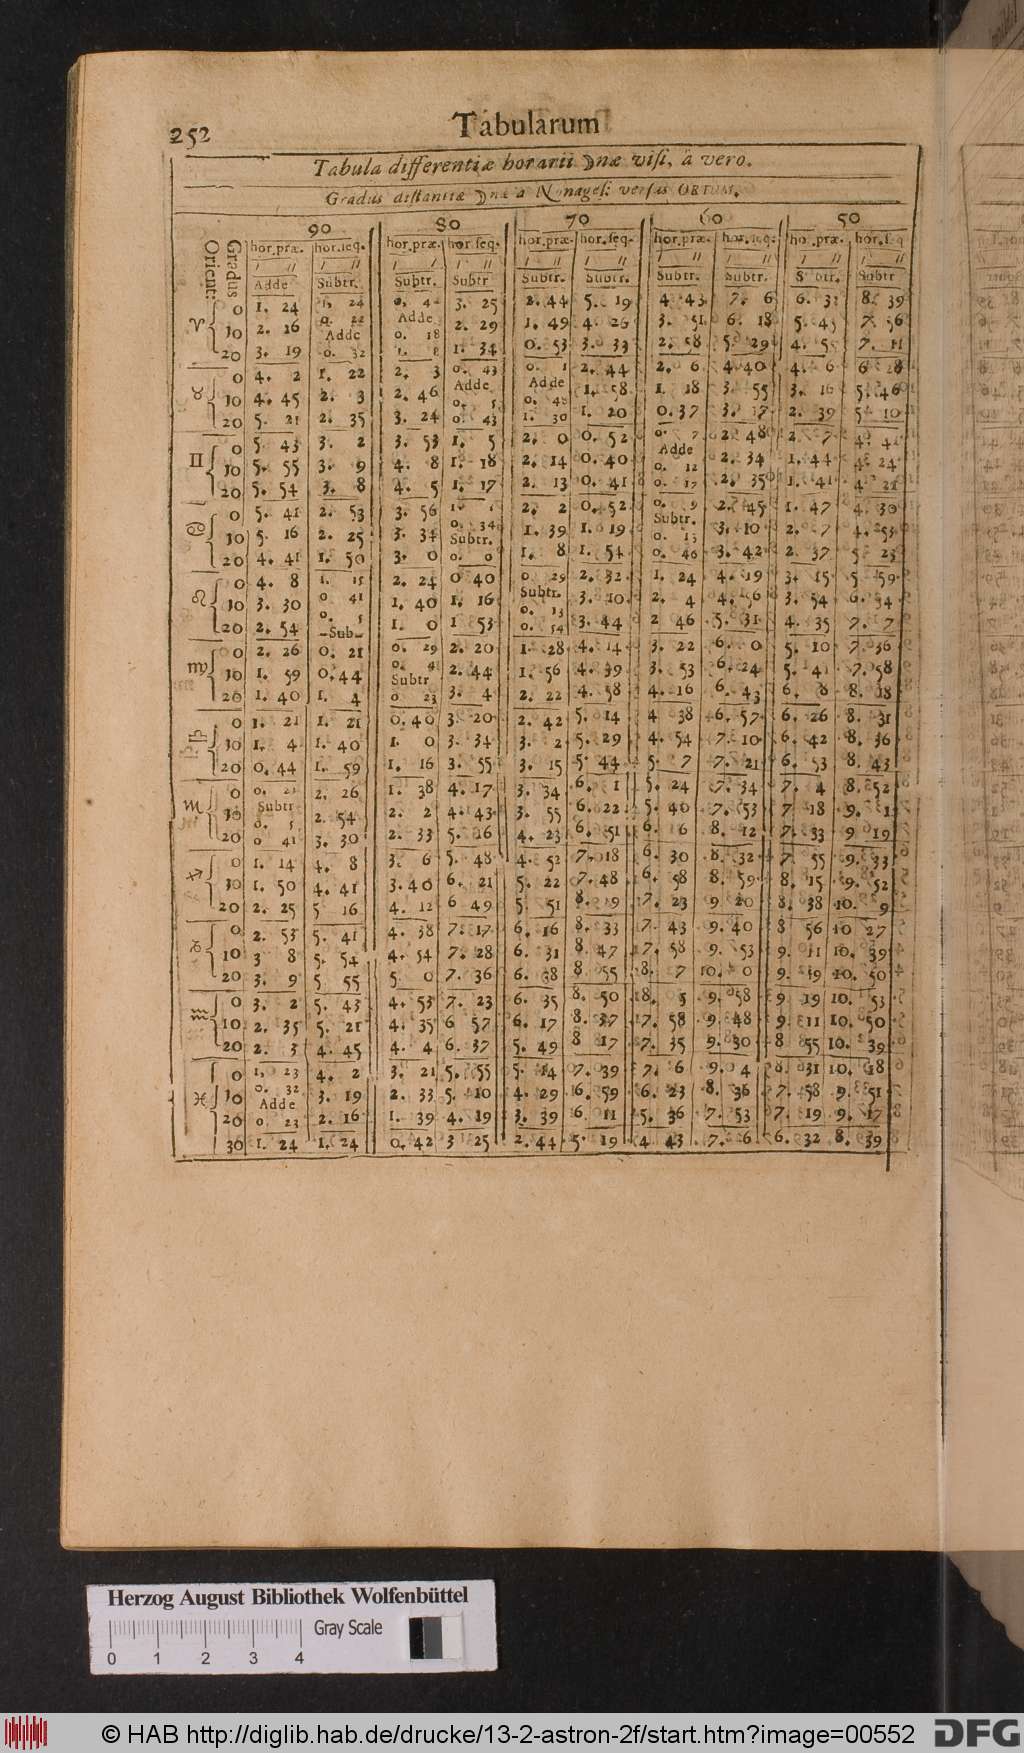 252 Tabularum
Tabula differentiæ horarii ☽næ visi, à vero.
Gradus distantiæ ☽næ a Nonages: versus ORTUM.
90 80 70 60 50
Gradus Orient:
hor.præ. hor.seq. hor.præ. hor.seq. hor.præ. hor.seq. hor.præ. hor.seq. hor.præ. hor.seq
Adde Subtr. Subtr. Subtr Subtr. Subtr. Subtr. Subtr. Subtr. Subtr
♈ 0 1. 24 1. 24 0. 42 3. 25 2. 44 5. 19 4 43 7. 6 6. 32 8. 39
10 2. 16 0. 22 Adde 0. 18 2. 29 1. 49 4. 26 3. 51 6. 18 5. 45 7. 56
20 3. 19 Adde 0. 32 1. 8 1. 34 0. 53 3. 33 2. 58 5. 29 4. 55 7. 11
♉ 0 4. 2 1. 22 2. 3 0. 43 0. 1 2. 44 2. 6 4. 40 4. 6 6 28
10 4. 45 2. 3 2. 46 Adde 0. 5 Adde 0. 48 1. 58 1. 18 3. 55 3. 16 5. 46
20 5. 21 2. 35 3. 24 0. 43 1. 30 1. 20 0. 37 3. 17 2. 39 5. 10
♊ 0 5. 43 3. 2 3. 53 1. 5 2. 0 0. 52 0. 7 2. 48 2. 7 4. 41
10 5. 55 3. 9 4. 8 1. 18 2. 14 0. 40 Adde 0. 12 2. 34 1. 44 4. 24
20 5. 54 3. 8 4. 5 1. 17 2. 13 0. 41 0. 17 2. 35 1. 41 4. 21
♋ 0 5. 41 2. 53 3. 56 1. 1 2. 2 0. 52 0. 9 2. 45 1. 47 4. 30
10 5. 16 2. 25 3. 34 0. 34 1. 39 1. 19 Subtr. 0. 13 3. 10 2. 7 4. 53
20 4. 41 1. 50 3. 0 Subtr. 0. 0 1. 8 1. 54 0. 46 3. 42 2. 37 5 23
♌ 0 4. 8 1. 15 2. 24 0 40 0. 29 2. 32 1. 24 4. 19 3. 15 5 59
10 3. 30 0 41 1. 40 1. 16 Subtr. 0. 13 3. 10 2. 4 4. 56 3. 54 6. 34
20 2. 54 0. 5 1. 0 1 53 0. 54 3. 44 2 46 5. 31 4. 35 7. 7
Sub
♍ 0 2. 26 0. 21 0. 29 2. 20 1. 28 4. 14 3. 22 6. 0 5. 10 7. 36
10 1. 59 0. 44 0. 41 2. 44 1. 56 4. 39 3. 53 6. 24 5. 41 7. 58
20 1. 40 1. 4 Subtr 0 23 3. 4 2. 22 4. 58 4. 16 6. 43 6. 8 8. 18
♎ 0 1. 21 1. 21 0. 40 3. 20 2. 42 5. 14 4 38 6. 57 6. 26 8. 31
10 1. 4 1. 40 1. 0 3. 34 3. 2 5. 29 4. 54 7. 10 6. 42 8. 36
20 0. 44 1. 59 1. 16 3. 55 3. 15 5. 44 5. 7 7. 21 6. 53 8. 43
♏ 0 0. 21 2. 26 1. 38 4. 17 3. 34 6. 1 5. 24 7. 34 7. 4 8. 52
10 Subtr 0. 5 2. 54 2. 2 4. 43 3. 55 6. 22 5. 40 7. 53 7. 18 9. 1
20 0 41 3. 30 2. 33 5. 16 4. 23 6. 51 6. 6 8. 12 7. 33 9 19
♐ 0 1. 14 4. 8 3. 6 5. 48 4. 52 7. 18 6. 30 8. 32 7. 55 9. 33
10 1. 50 4. 41 3. 40 6. 21 5. 22 7. 48 6. 58 8. 59 8. 15 9. 52
20 2. 25 5 16 4. 12 6 49 5. 51 8. 19 7. 23 9 20 8. 38 10. 9
♑ 0 2. 53 5. 41 4. 38 7. 17 6. 16 8. 33 7. 43 9. 40 8 56 10 27
10 3 8 5. 54 4. 54 7. 28 6. 31 8. 47 7. 58 9. 53 9. 11 10. 39
20 3. 9 5 55 5. 0 7. 36 6. 38 8. 55 8. 7 10. 0 9. 19 10. 50
♒ 0 3. 2 5. 43 4. 53 7. 23 6. 35 8. 50 8. 5 9. 58 9 19 10. 53
10 2. 35 5. 21 4. 35 6 57 6. 17 8. 37 7. 58 9. 48 9. 11 10. 50
20 2. 3 4. 45 4. 4 6. 37 5. 49 8 17 7. 35 9. 30 8 55 10. 39
♓ 0 1. 23 4. 2 3. 21 5. 55 5. 14 7. 39 7. 6 9. 4 8. 31 10. 18
10 0. 32 3. 19 2. 33 5. 10 4. 29 6. 59 6. 23 8. 36 7. 58 9. 51
20 Adde 0. 23 2. 16 1. 39 4. 19 3. 39 6 11 5. 36 7. 53 7. 19 9. 17
30 1. 24 1. 24 0. 42 3 25 2. 44 5. 19 4 43 7. 6 6. 32 8. 39
Herzog August Bibliothek Wolfenbüttel
Gray Scale
0 1 2 3 4
© HAB http://diglib.hab.de/drucke/13-2-astron-2f/start.htm?image=00552 DFG